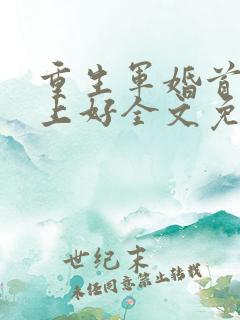 重生军婚首
上好全文免
世纪末
未经同意禁止转载